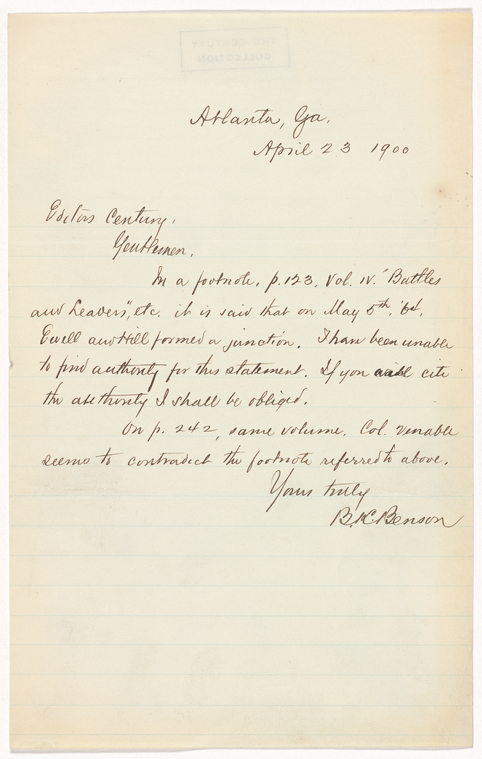 Atlanta, Ga.
April 23 1900
Editors Century,
Gentlemen,
In a footnote, p. 123, Vol. IV. "Battles
and Leaders", etc. it is said that on May 5th, '64,
Ewell and Hill formed a junction. I have been unable
to find authority for this statement. If you will cite
the authority I shall be obliged.
On p. 242, same volume, Col. Venable
seems to contradict the footnote referred to above.
Yours truly
B. K. Benson